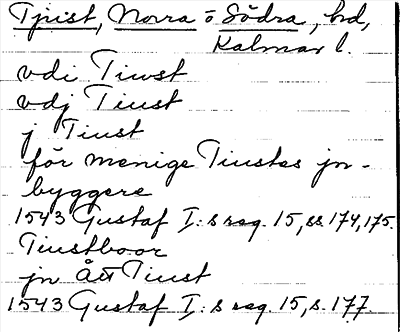 Tjust, Norra o Södra, hd,
Kalmar l.
vdi Tiwst
vdj Tiust
j Tiust
för menige Tiustes jn-
byggere
1543 Gustaf I:s reg. 15, ss. 174, 175.
Tiustboor
jn Tiust
1543 Gustaf I:s reg. 15, s. 177.